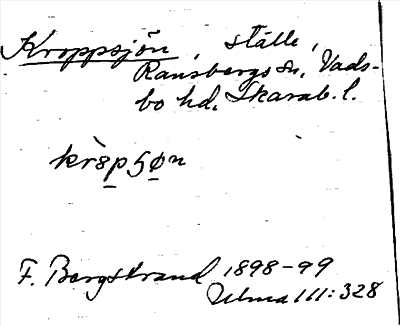 Kroppsjön, ställe,
Ransbergs sn, Vads-
bo hd, Skarab. l.
kr̀8pʂøn
F. Bergstrand 1898-99
Ulma 111:328